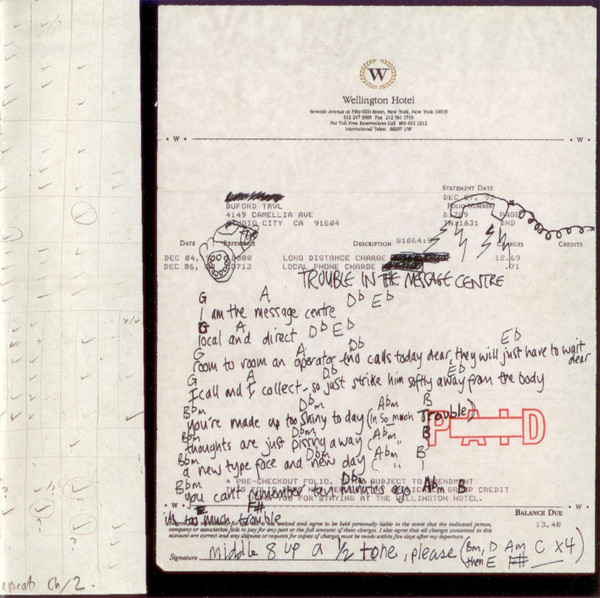 W
Wellington Hotel
Seventh Avenue at Fifty-fifth Street, New York, New York 10019
212 247 3900 Fax 212 581 1719
Toll Free Reservations Call 800 652 1212
International Telex 66297 UW
W W
STATEMENT DATE
DEC 07, 92
BUFORD TRVL FOLIO NUMBER
4149 CAMELLIA AVE PAGE
STUDIO CITY CA 91604 IN 1831 END
DATE REFERENCE DESCRIPTION CHARGES CREDITS
DEC 04, LONG DISTANCE CHARGE 12.69
DEC 06, LOCAL PHONE CHARGE .71
TROUBLE IN THE MESSAGE CENTRE
G A Db Eb
I am the message centre
G A Db Eb
local and direct
G A Db Eb
room to room an operator - and calls today dear, they will just have to wait dear
G A Db Eb
I call and I collect - so just strike him softly away from the body
Bbm Dbm Abm B
you're made up too shiny to day (in so much Trouble)
Bbm Dbm Abm B
thoughts are just pissing away " "
Bbm Dbm Abm B
a new type face and new day ( " )
Bbm Dbm Abm B
you can't remember ten minutes ago
E F#
its too much trouble
PAID
* PRE-CHECKOUT FOLIO. SUBJECT TO AMENDMENT
GROUP CREDIT
FOR STAYING AT THE WELLINGTON HOTEL.
W W
BALANCE DUE
13.40
received and agree to be held personally liable in the event that the indicated person,
company or association fails to pay for any part or the full amount of these charges. I also agree that all charges contained in this
account are correct and any disputes or requests for copies of charges must be made within five days after my departure.
Signature
middle 8 up a 1/2 tone, please (Bm, D Am C X4)
then E F#
repeats Ch/2.